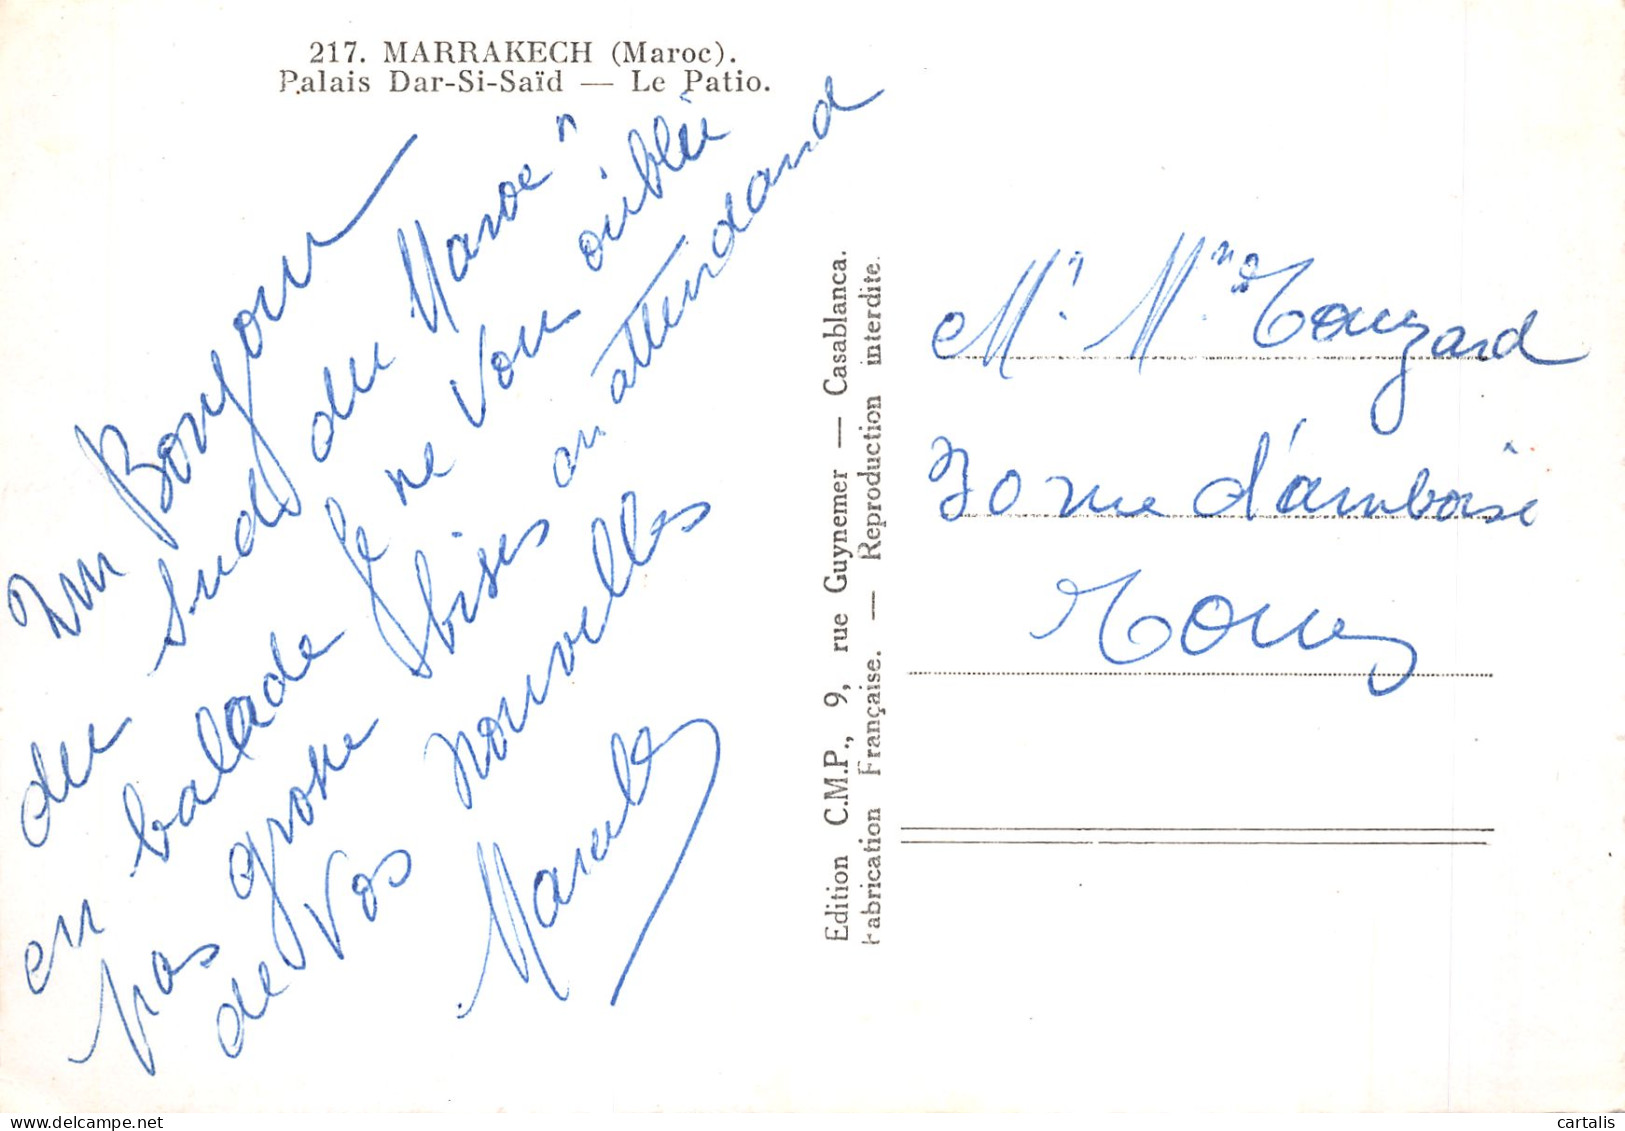 217. MARRAKECH (Maroc).
Palais Dar-Si-Saïd — Le Patio.
Un Bonjour
du Sud du Maroc"
en balade Je ne vous oublie
pas grosse bises en attendand
de Vos nouvelles
Edition C.M.P., 9, rue Guynemer — Casablanca.
Fabrication Française. — Reproduction interdite.
Mr Mme Touzard
30 rue d'amboise
Tours
cartalis
www.delcampe.net